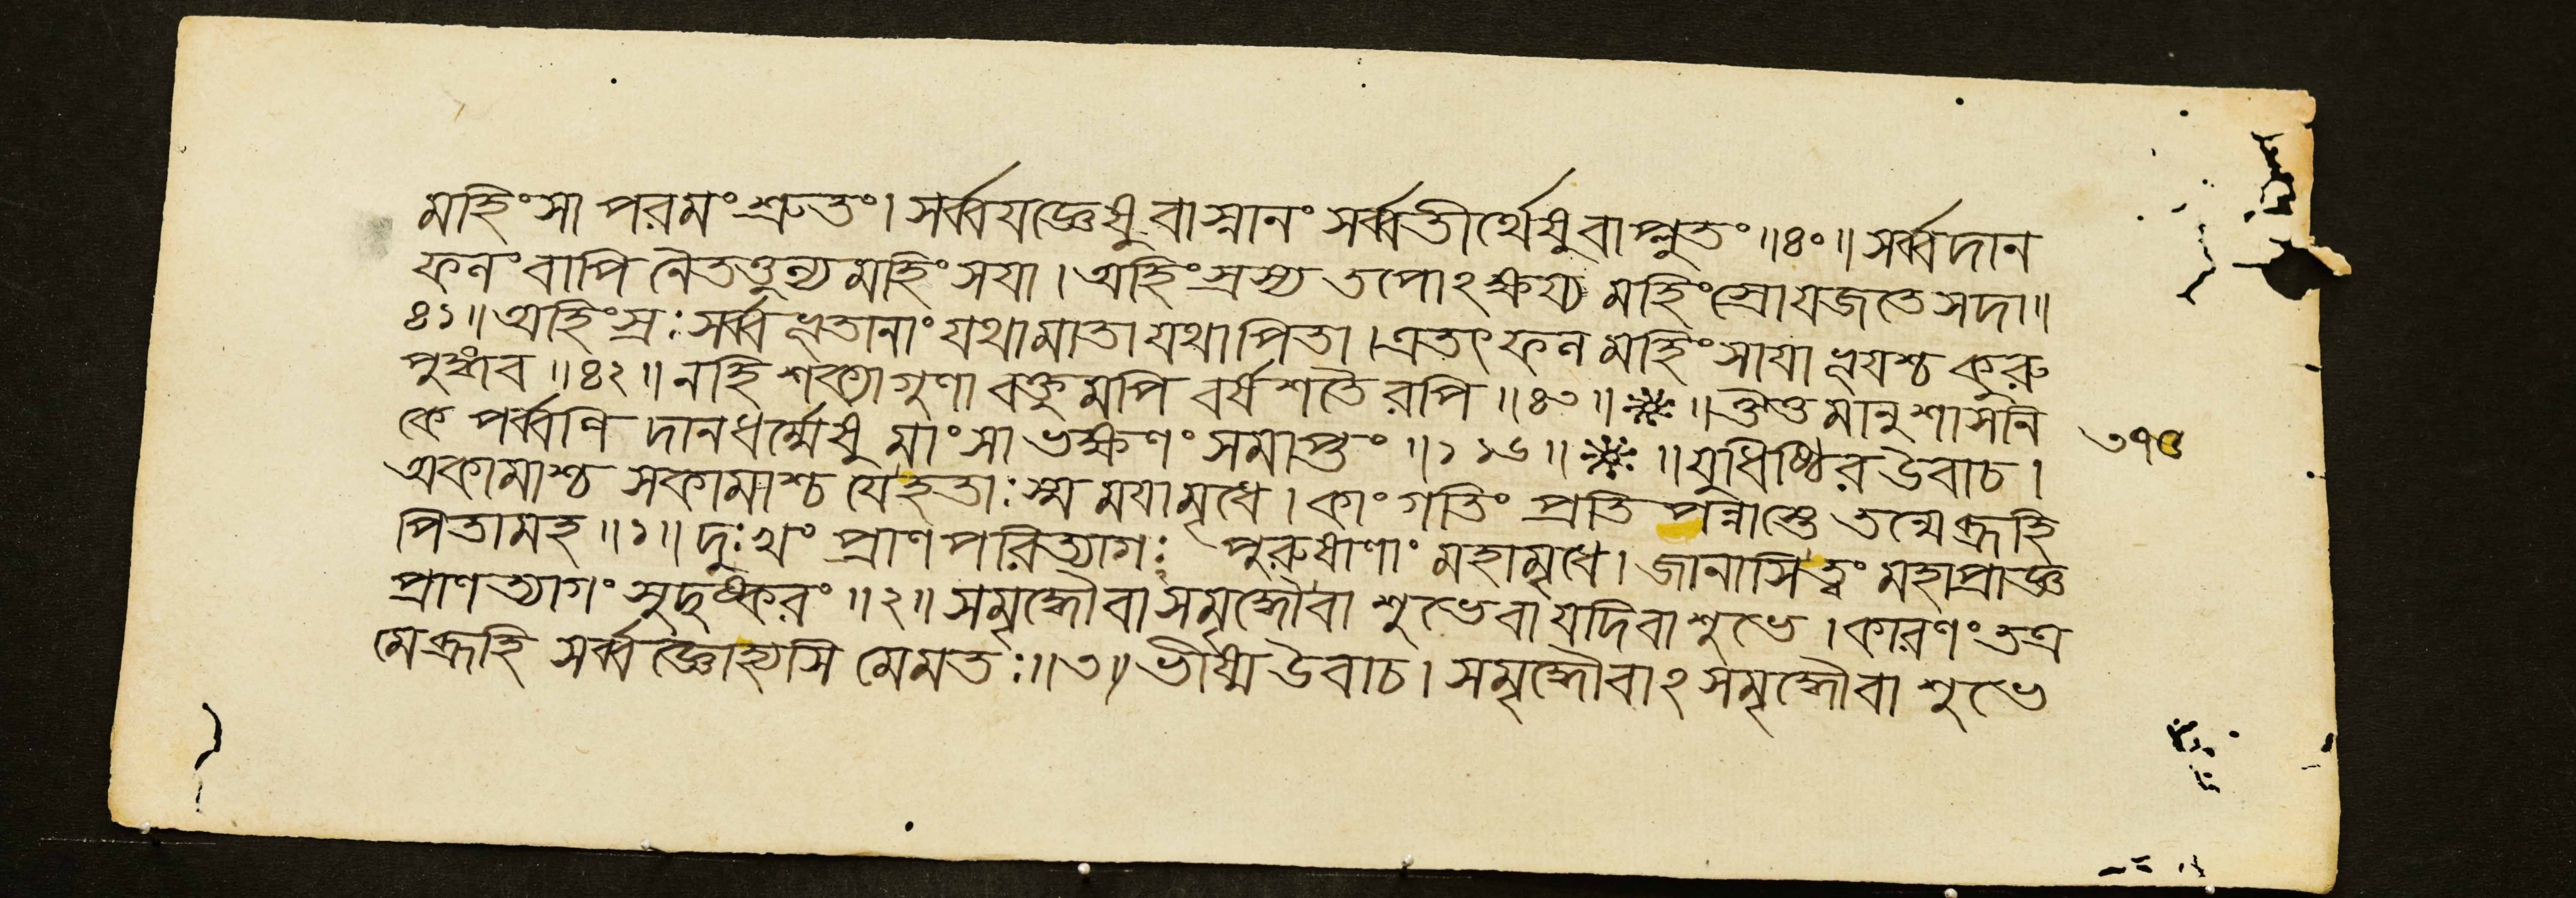 মহিংসা পরমং শ্রুতং। সর্ব্বযজ্ঞেষু বা স্নানং সর্ব্বতীর্থেষু বাপ্লুতং ॥৪০॥ সর্ব্বদান
ফলং বাপি নৈতত্তুল্য মহিংসয়া। অহিংস্রস্য তপোঽক্ষয্য মহিংস্রো যজতে সদা॥
৪১॥ অহিংস্রঃ সর্ব্বভূতানাং যথা মাতা যথা পিতা। এতৎ ফল মহিংসায়া ভূয়শ্চ কুরু
পুঙ্গব ॥৪২॥ নহি শক্যা গুণা বক্তুমপি বর্ষশতৈরপি ॥৪৩॥ ❈ ॥
কে পর্ব্বণি দানধর্ম্মেষু মাংসাভক্ষণং সমাপ্তং ॥১১৬॥ ❈ ॥ যুধিষ্ঠির উবাচ।
অকামাশ্চ সকামাশ্চ যে হতাঃ স্ম মহামৃধে। কাং গতিং প্রতিপন্নাস্তে তন্মে ব্রূহি
পিতামহ ॥১॥ দুঃখং প্রাণপরিত্যাগঃ পুরুষাণাং মহামৃধে। জানাসি ত্বং মহাপ্রাজ্ঞ
প্রাণত্যাগং সুদুষ্করং ॥২॥ সমৃদ্ধৌ বা সমৃদ্ধৌ বা শুভে বা যদি বা শুভে। কারণং তত্র
মে ব্রূহি সর্ব্বজ্ঞো হ্যসি মে মতঃ॥৩॥ ভীষ্ম উবাচ। সমৃদ্ধৌ বাঽসমৃদ্ধৌ বা শুভে